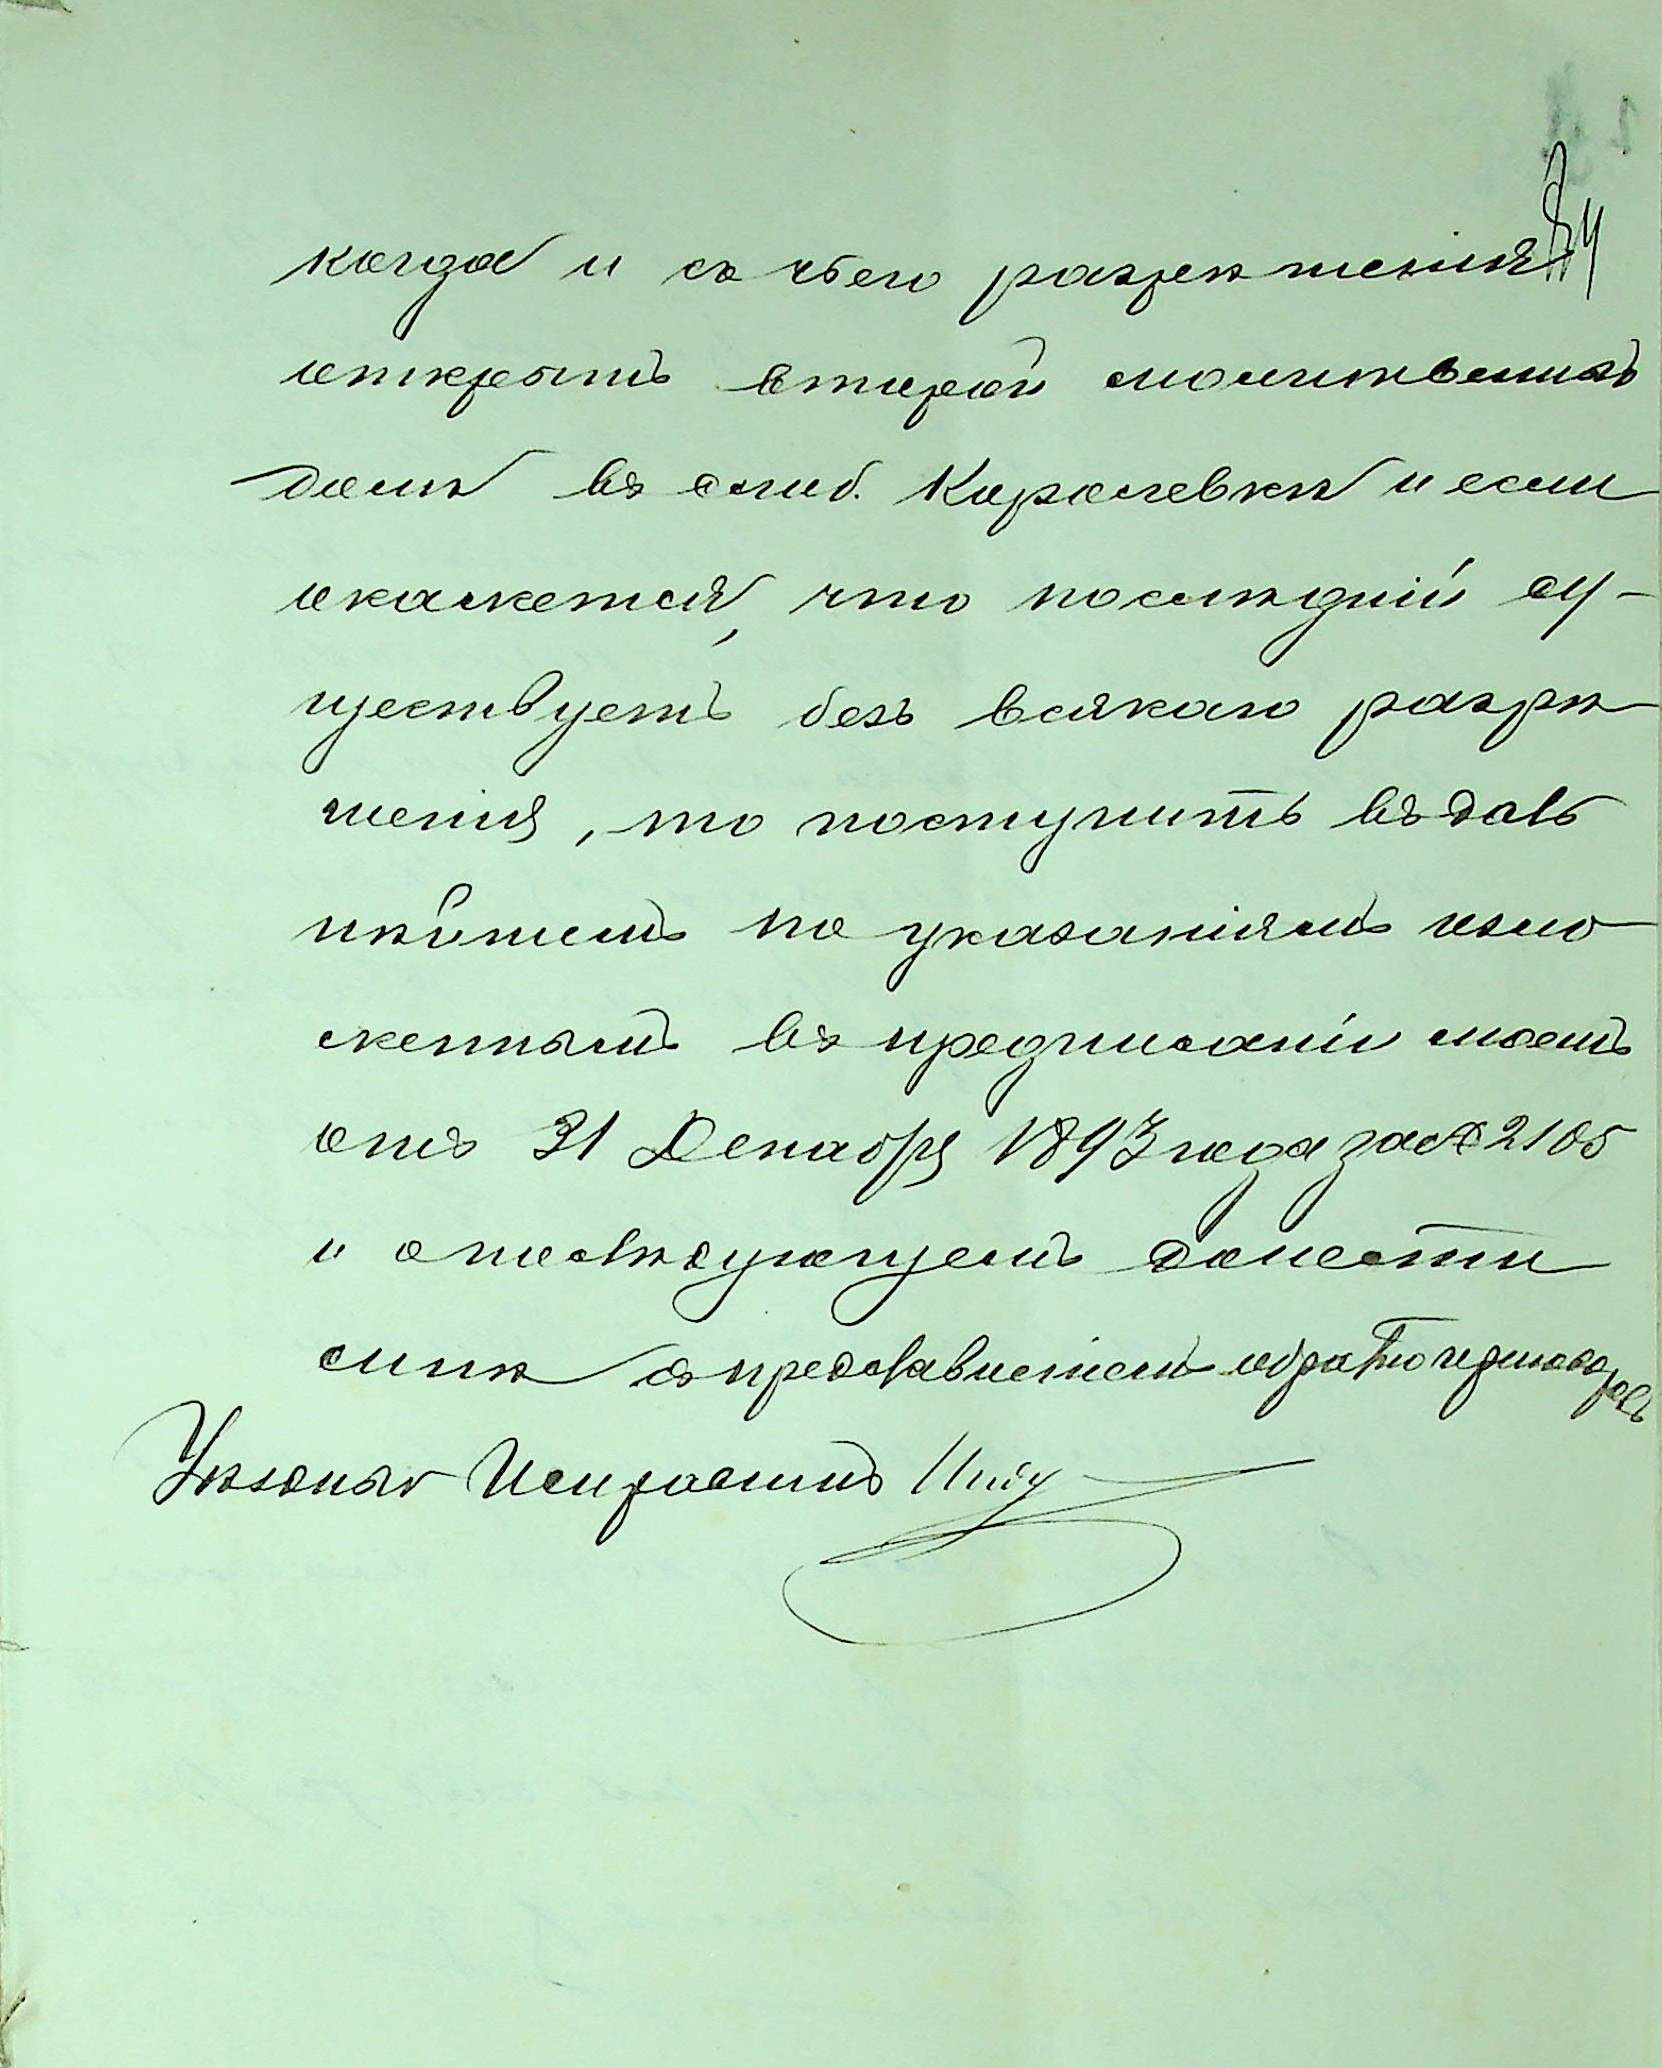 когда и съ чьего разрѣшенія
открытъ второй молитвенный
домъ въ слоб. Королевкѣ и если
окажется, что послѣдній су-
ществуетъ безъ всякаго разрѣ
шенія, то поступить въ даль
нѣйшемъ по указаніямъ изло
женнымъ въ предписаніи моемъ
отъ 31 Декабря 1893 года за № 2105
и о послѣдующемъ донести
мнѣ съ представленіемъ обратно
Уѣздный Исправникъ